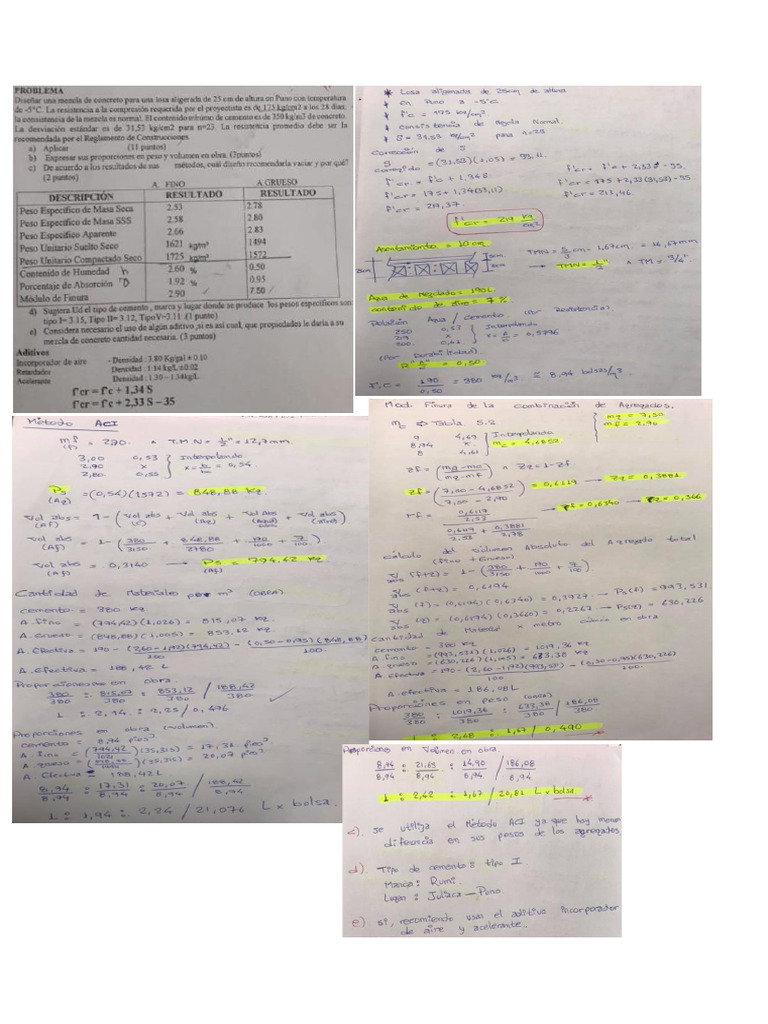 PROBLEMA
Diseñar una mezcla de concreto para una losa aligerada de 25 cm de altura en Puno con temperatura
de -5°C. La resistencia a la compresión requerida por el proyectista es de 175 kg/cm2 a los 28 días,
la consistencia de la mezcla es normal. El contenido mínimo de cemento es de 350 kg/m3 de concreto.
La desviación estándar es de 31,53 kg/cm2 para n=23. La resistencia promedio debe ser la
recomendada por el Reglamento de Construcciones.
a) Aplicar (11 puntos)
b) Expresar sus proporciones en peso y volumen en obra. (3puntos)
c) De acuerdo a los resultados de sus métodos, cuál diseño recomendaría vaciar y por qué?
(2 puntos)
A. FINO A GRUESO
DESCRIPCIÓN RESULTADO RESULTADO
Peso Especifico de Masa Seca 2.53 2.78
Peso Especifico de Masa SSS 2.58 2.80
Peso Especifico Aparente 2.66 2.83
Peso Unitario Suelto Seco 1621 kg/m³ 1494
Peso Unitario Compactado Seco 1725 kg/m³ 1572
Contenido de Humedad h 2.60 % 0.50
Porcentaje de Absorción 1.92 % 0.95
Módulo de Finura 2.90 7.50
d) Sugiera Ud el tipo de cemento, marca y lugar donde se produce los pesos específicos son
tipo I= 3.15, Tipo II= 3.12, TipoV=3.11 (1 punto)
e) Considera necesario el uso de algún aditivo ,si es así cual, que propiedades le daría a su
mezcla de concreto cantidad necesaria. (3 puntos)
Aditivos
Incorporador de aire - Densidad : 3.80 Kg/gal ± 0.10
Retardador Densidad : 1.14 kg/L ± 0.02
Acelerante Densidad : 1.30 – 1.34kg/L
f'cr = f'c + 1,34 S
f'cr = f'c + 2,33 S – 35
* Losa aligerada de 25cm de altura
* en Puno a -5°C
* f'c = 175 kg/cm²
* consistencia de Mezcla Normal.
* S = 31.53 kg/cm² para n=23
Corrección de S
S = (31,53)(1,05) = 33.11.
corregido
f'cr = f'c + 1,34S
f'cr = 175 + 1,34(33,11)
f'cr = 219,37.
f'cr = f'c + 2,33S - 35.
f'cr = 175 + 2,33(31,53) - 35.
f'cr = 213,46.
f'cr = 219 kg/cm²
Asentamiento = 10 cm.
25cm 5cm. 20cm
TMN = 5/3 cm = 1,67cm = 16,67mm
→ TMN = 1/2" ∧ TM = 3/4"
Agua de Mezclado = 190L
contenido de aire = 7 %
Relación Agua / Cemento (por Resistencia).
250 0,53
219 x
200 0,61
Interpolando
(Por Durabilidad)
R a/c = 0,50
F.C = 190/0,50 = 380 kg/m³ ≅ 8,94 bolsas/m³
Método ACI
mf = 2,90 ∧ T.M.N = 1/2" = 12,7mm.
(f)
3,00 0,53
2,90 x
2,80 0,55
Interpolando.
x = b/b₀ = 0,54
Ps = (0,54)(1572) = 848,88 Kg.
(Ag)
Vol abs = 1 - (Vol abs + Vol abs + Vol abs + Vol abs)
(Af) (c) (Ag) (Agua) (Aire)
Vol abs = 1 - (380/3150 + 848,88/2780 + 190/1000 + 7/100)
(Af)
Vol abs = 0,3140 → Ps = 794,42 Kg
(Af) (Af)
Cantidad de Materiales por m³ (OBRA).
cemento = 380 kg
A. fino = (794,42)(1,026) = 815,07 Kg.
A. Grueso = (848,88)(1,005) = 853,12 Kg.
A. Efectiva = 190 - (2,60-1,92)(794,42)/100 - (0,50-0,95)(848,88)/100.
A. Efectiva = 188,42 L
Proporciones en obra.
380/380 : 815,07/380 : 853,12/380 / 188,42/380
1 : 2,14 : 2,25 / 0,496
Proporciones en obra (volumen).
cemento = 8,94 pies³
A fino = (794,42/1621)(35,315) = 17,31 pies³
A. Grueso = (848,88/1494)(35,315) = 20,07 pies³
A Efectiva = 188,42L
8,94/8,94 : 17,31/8,94 : 20,07/8,94 / 188,42/8,94
1 : 1,94 : 2,24 / 21,076 L x bolsa.
Mod. Finura de la combinación de Agregados.
mc ⇒ Tabla. 5.2
mg = 7,50
mf = 2,90
9 4,69
8,94 x
8 4,61
Interpolando
mc = 4,6852
zf = (mg-mc / mg-mf) ∧ zg = 1-zf.
zf = (7,00 - 4,6852 / 7,00 - 2,90) = 0,6119 → zg = 0,3881
rf = (0,6119/2,53) / (0,6119/2,53 + 0,3881/2,78) → rf = 0,6340 → rg = 0,366
cálculo del Volumen Absoluto del Agregado total
(Fino + Grueso)
V (f+g) = 1 - (380/3150 + 190/1000 + 7/100)
abs
V (f+g) = 0,6194
abs
V (f) = (0,6194)(0,6340) = 0,3927 → Ps(f) = 993,531
abs
V (g) = (0,6194)(0,3660) = 0,2267 → Ps(g) = 630,226
abs
Cantidad de Material x metro cúbico en obra
cemento = 380 kg
A fino = (993,531)(1,026) = 1019,36 kg
A grueso = (630,226)(1,005) = 633,38 kg
A efectiva = 190 - (2,60-1,92)(993,531)/100 - (0,50-0,95)(630,226)/100
A. efectiva = 186,08L
Proporciones en peso (OBRA)
380/380 : 1019,36/380 : 633,38/380 / 186,08/380
1 : 2,68 : 1,67 / 0,490
Proporciones en Volumen. en obra.
8,94/8,94 : 21,65/8,94 : 14,90/8,94 / 186,08/8,94
1 : 2,42 : 1,67 / 20,81 L x bolsa
c). se utiliza el Método ACI ya que hay menor
diferencia en sus pesos de los agregados.
d). Tipo de cemento = tipo I.
Marca : Rumi.
Lugar : Juliaca - Puno.
e) si, recomiendo usar el aditivo incorporador
de aire y acelerante.